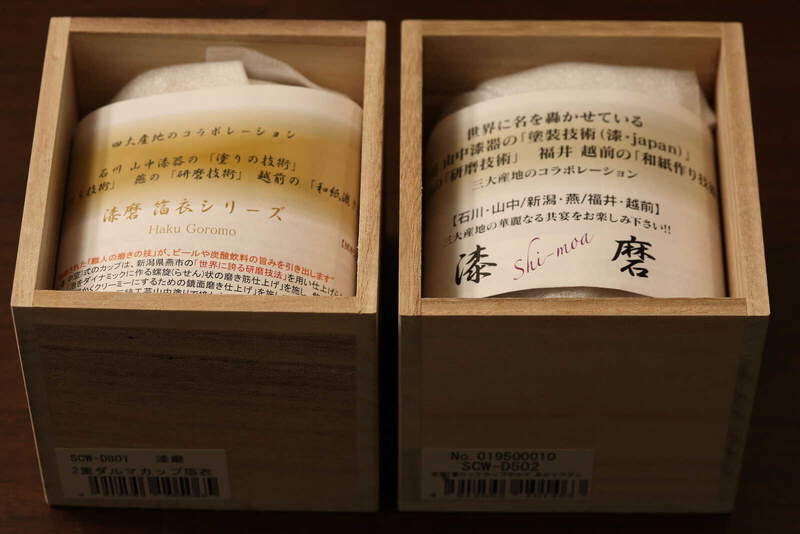 四大産地のコラボレーション
石川 山中漆器の「塗りの技術」
技術」 燕の「研磨技術」 越前の「和紙漉
漆磨 箔衣シリーズ
Haku Goromo
「職人の磨きの技」が、ビールや炭酸飲料の旨みを引き出します"
式のカップは、新潟県燕市の「世界に誇る研磨技法」を用い仕上げ
をダイナミックに作る螺旋(らせん)状の磨き筋仕上げ」を施し、
クリーミーにするための鏡面磨き仕上げ」を施し
SCW-D801 漆磨
2重ダルマカップ箔衣
世界に名を轟かせている
山中漆器の「塗装技術(漆・japan)」
「研磨技術」 福井 越前の「和紙作り技
三大産地のコラボレーション
【石川・山中/新潟・燕/福井・越前】
三大産地の華麗なる共宴をお楽しみ下さい!!
漆 Shi-moa 磨
No. 019500010
SCW-D502